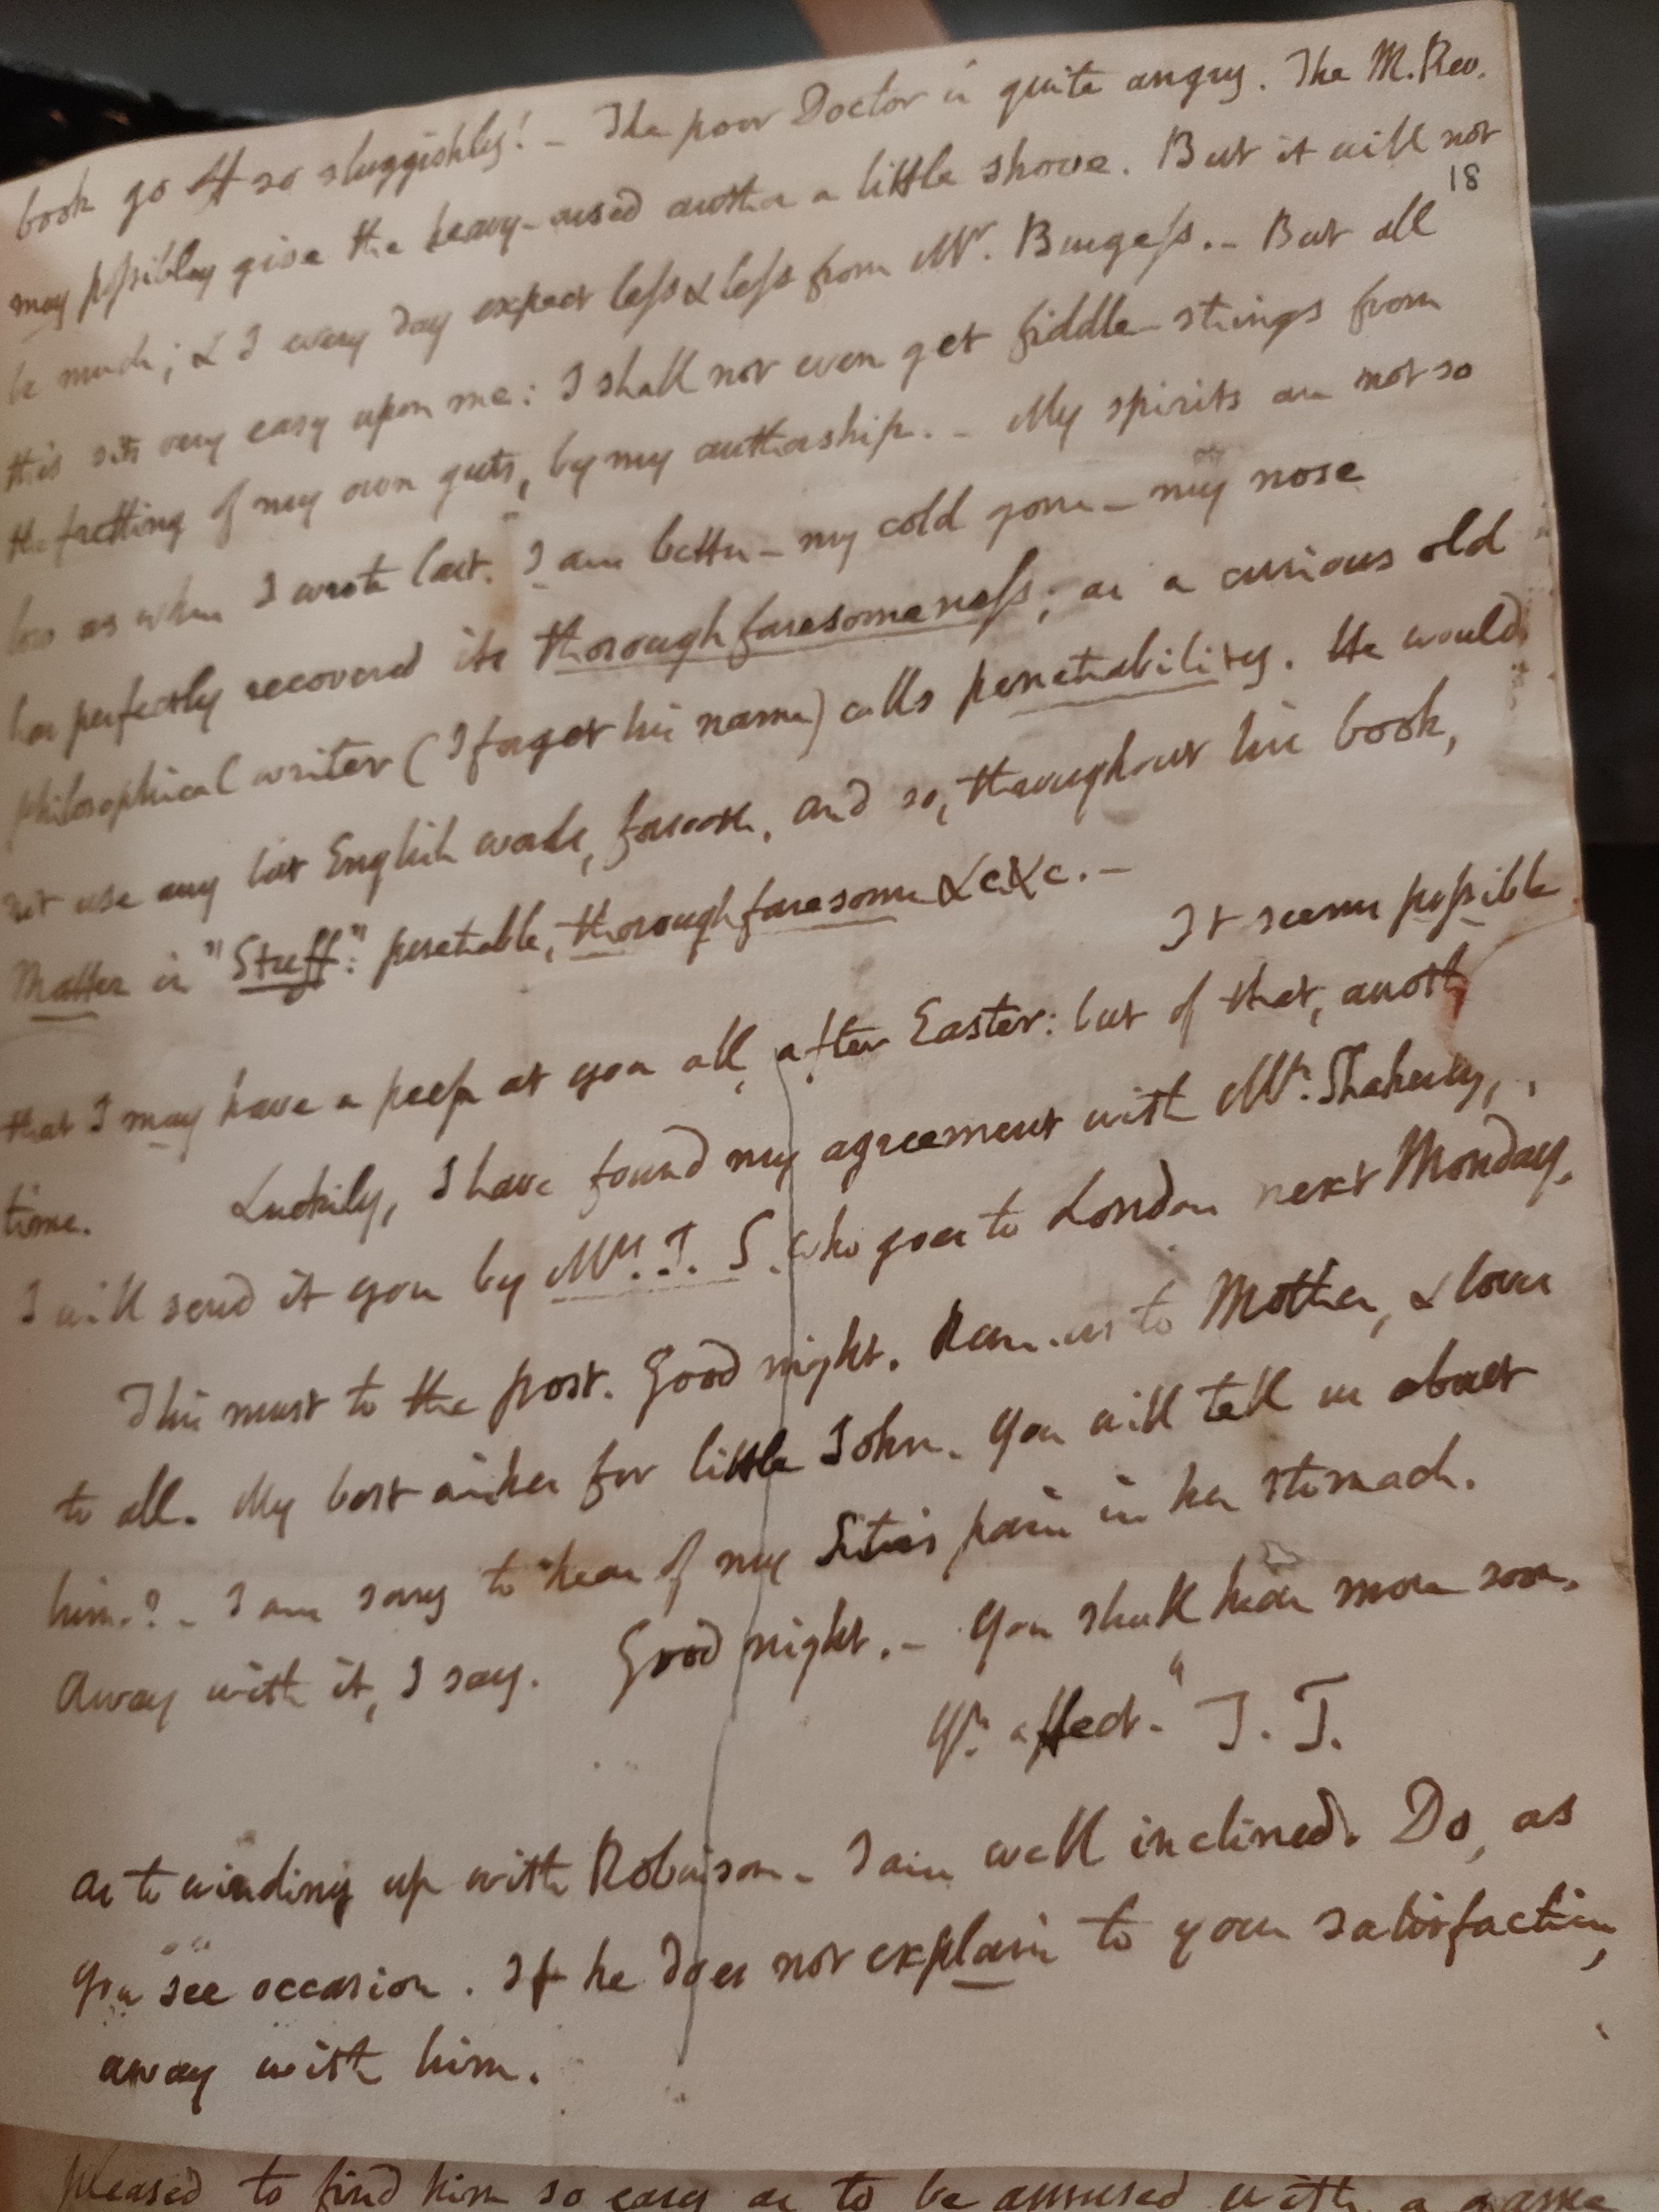 book go off so sluggishly! – The poor Doctor is quite angry. The M. Rev.
may possibly give the heavy-arsed author a little shove. But it will not
18
be much; & I every day expect less & less from Mr. Burgess. – But all
this sits very easy upon me: I shall not even get fiddle-strings from
the fretting of my own guts, by my authorship. – My spirits are not so
low as when I wrote last. I am better – my cold gone – my nose
has perfectly recovered its thoroughfaresomeness; as a curious old
philosophical writer (I forget his name) calls penetrability. He would
not use any but English words, forsooth, and so, throughout his book,
Matter is "Stuff": penetrable, thoroughfaresome &c &c. –
It seems possible
that I may have a peep at you all, after Easter: but of that, anoth
time. Luckily, I have found my agreement with Mr.
I will send it you by Mrs. J. S. who goes to London next Monday.
This must to the post. Good night. Rem. us to Mother, & loves
to all. My best wishes for little John. You will tell us about
him.? – I am sorry to hear of my Sister's pain in her stomach.
Away with it, I say. Good night. – You shall hear more soon.
Yr. affect. T. T.
As to winding up with Robinson – I am well inclined. Do, as
you see occasion. If he does not explain to your satisfaction,
away with him.
pleased to find him so easy as to be amused with a game